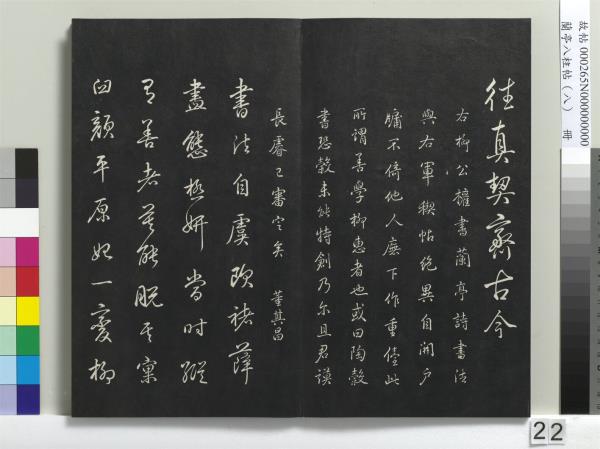 往真契齊古今
右柳公權書蘭亭詩書法
與右軍稧帖絶異自開戶
牖不倚他人廡下作重儓此
所謂善學柳惠者也或曰陶穀
書恐穀未能特創乃爾且君謨
長睿已審定矣 董其昌
書法自虞歐褚薛
盡態極妍當時縱
有善者莫能脫其窠
臼顏平原始一變柳
故帖 000265N000000000
蘭亭八柱帖(八) 冊
22